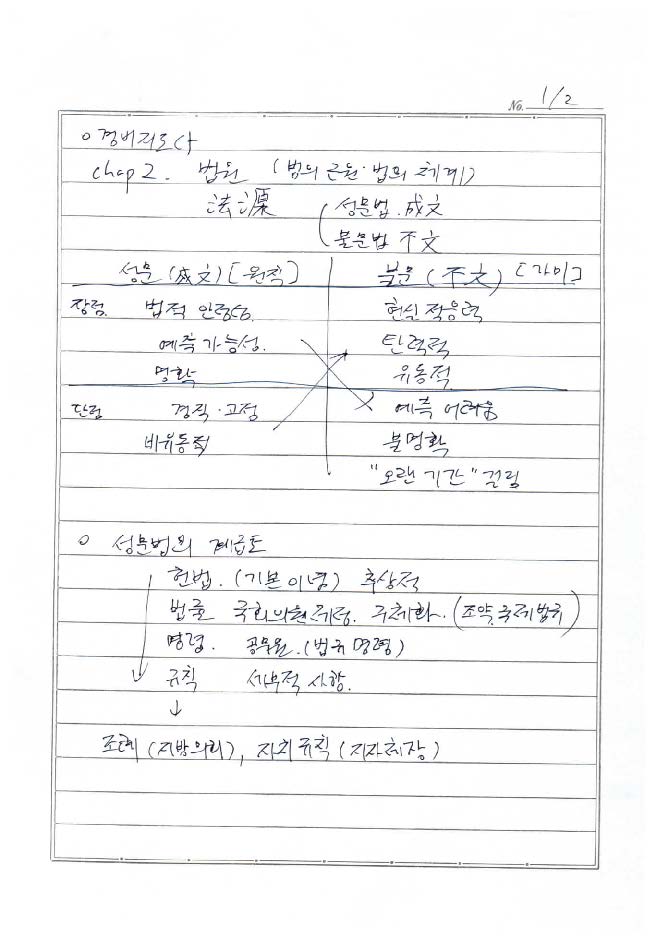 No. 1/2
○ 경비지도사
chap 2. 법원 (법의 근원·법의 체계)
法源 ( 성문법. 成文
불문법 不文
성문(成文) [원칙] 불문(不文) [가미]
장점 법적 안정성. 현실 적응력
예측 가능성. 탄력적
명확 유동적
단점 경직·고정 예측 어려움
비유동적 불명확
"오랜 기간" 걸림
○ 성문법의 계급도
헌법. (기본이념) 추상적
법률 국회의원 제정. 구체화. (조약, 국제법규)
명령. 공무원. (법규명령)
규칙 세부적 사항.
↓
조례 (지방의회), 자치규칙 (지자체장)